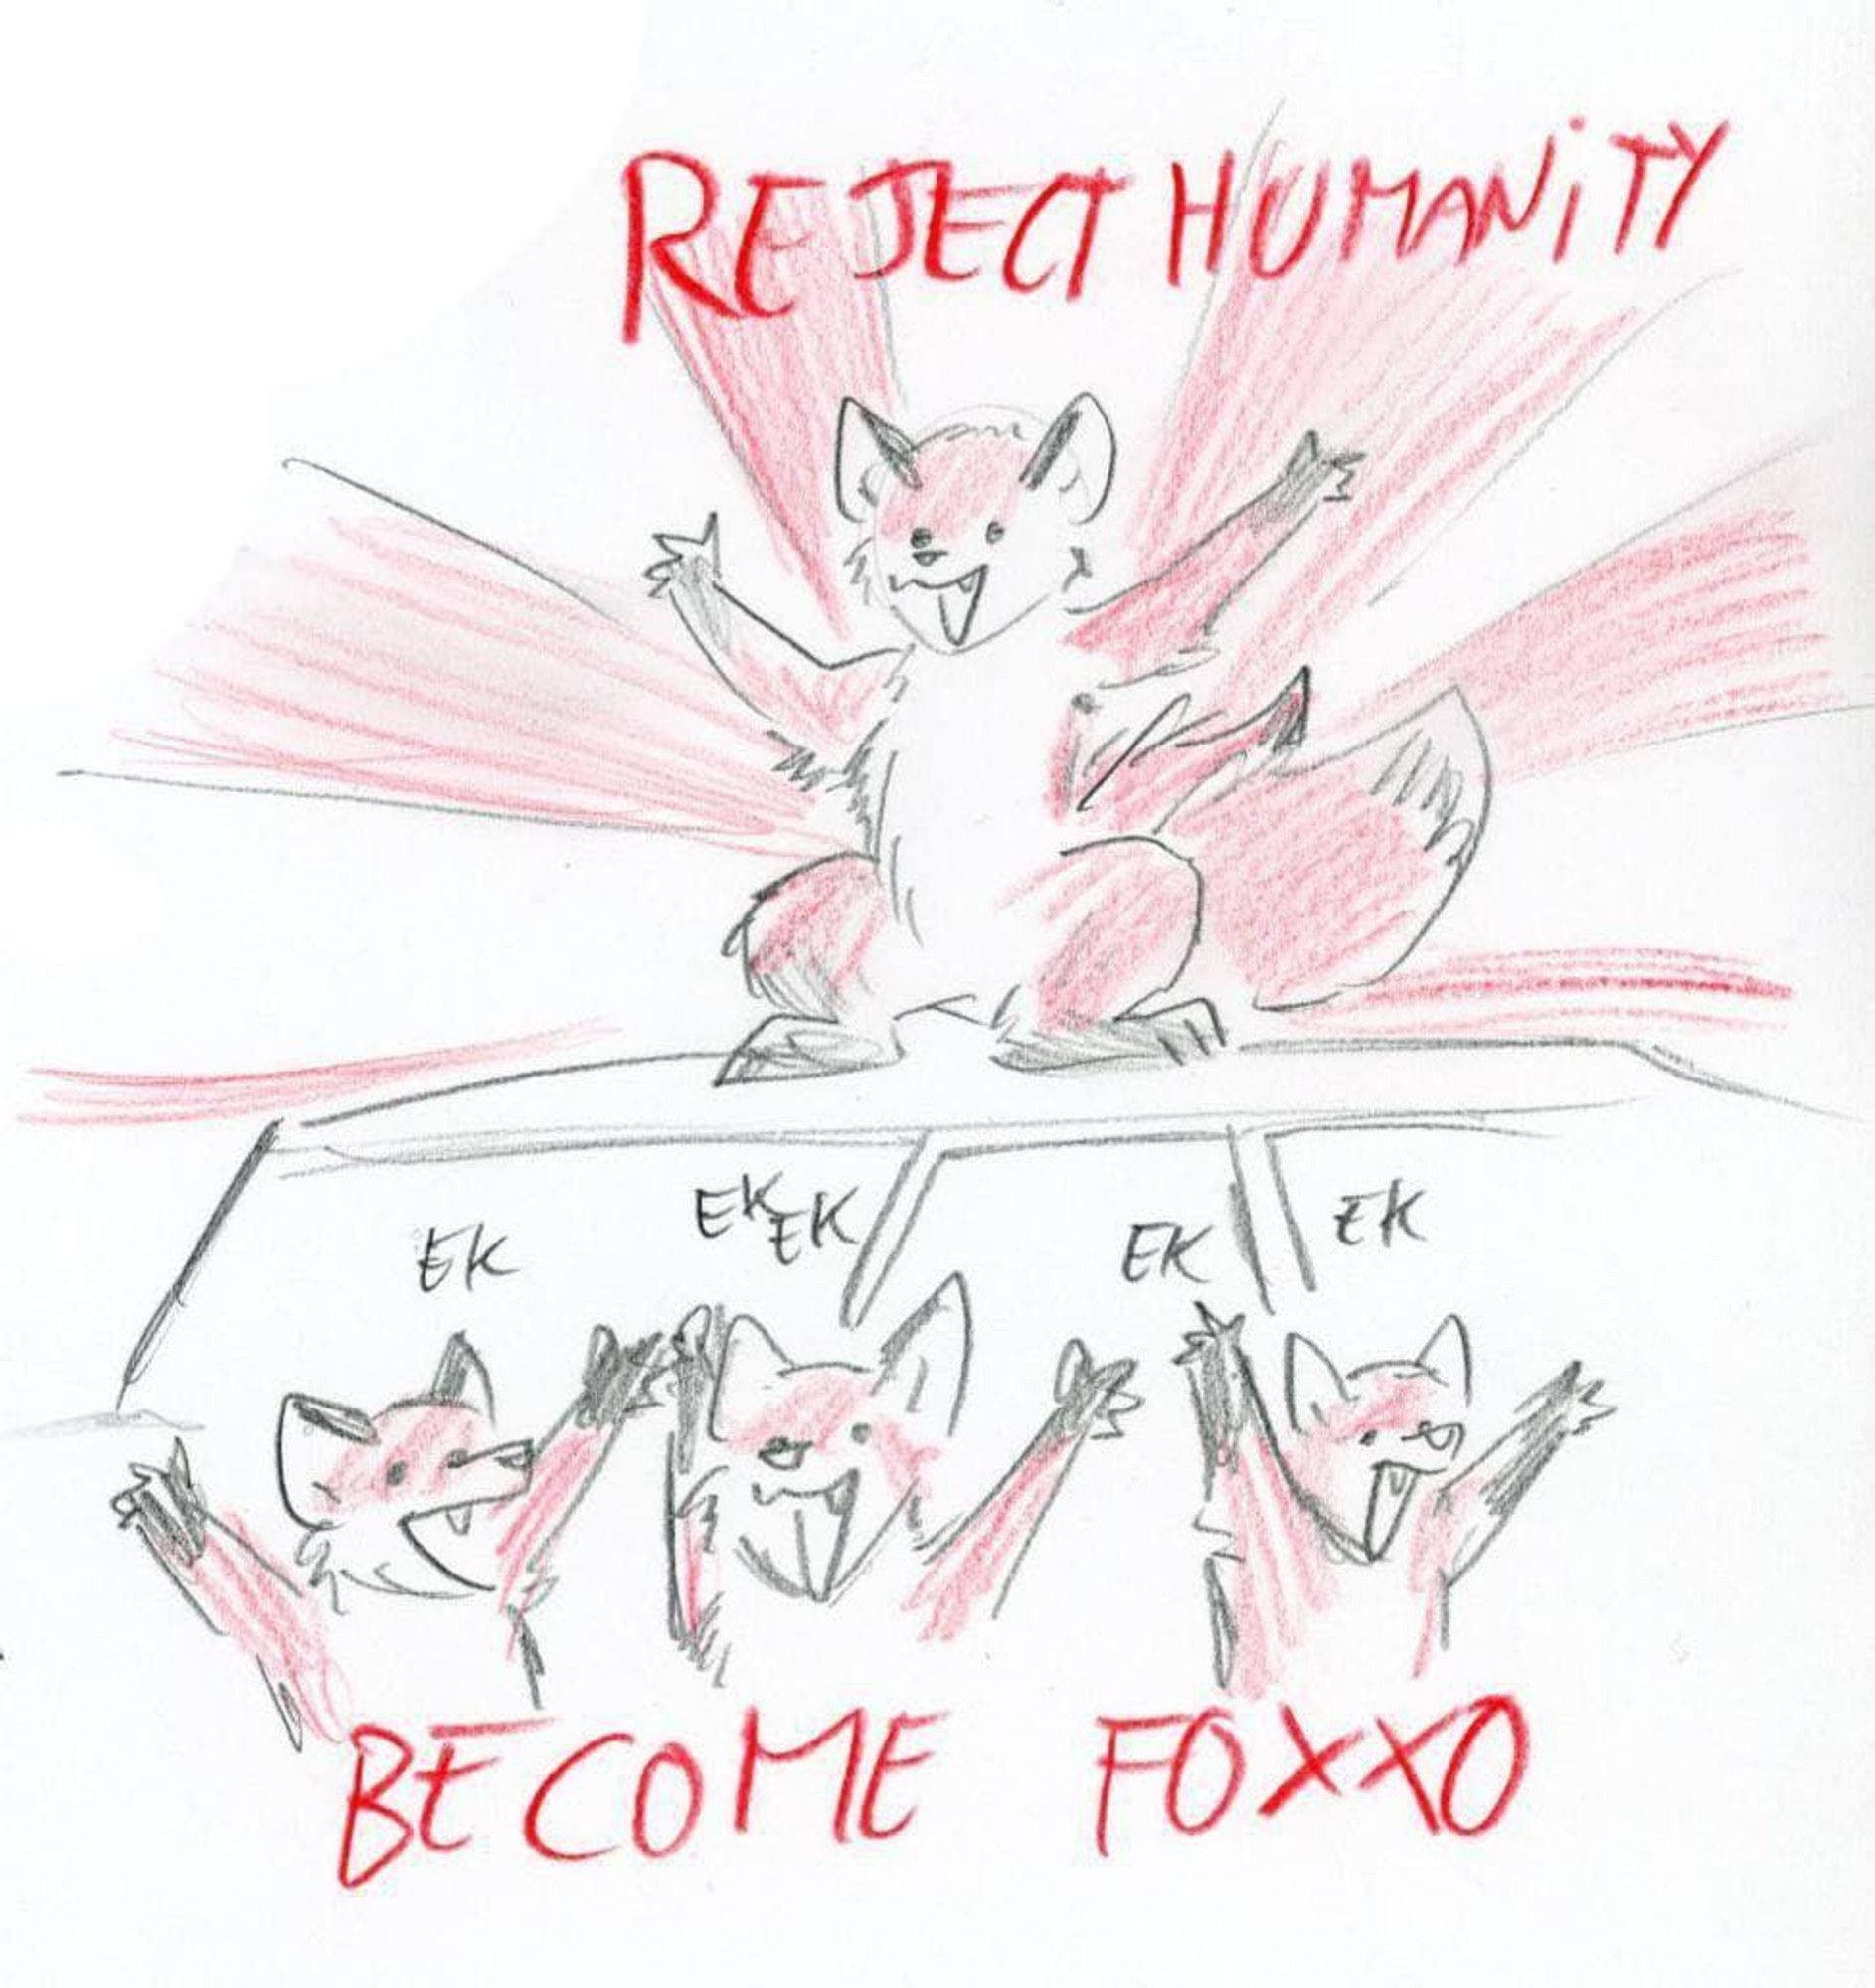 REJECT HUMANiTY
EK
EK
EK
EK
EK
BECOME FOXXO